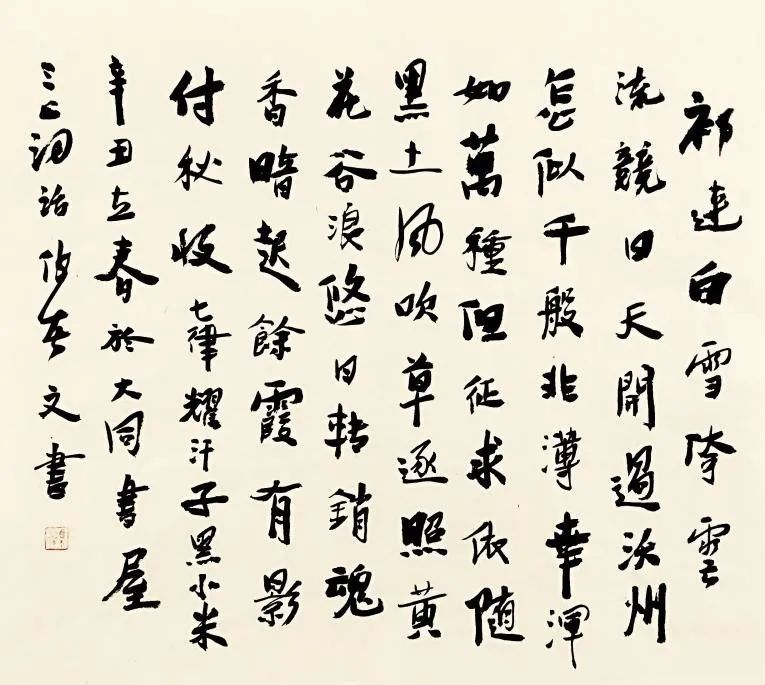 祁連白雪降雲
流競日天開過沃州
怎似千般非薄幸渾
如萬種但征求依隨
黑土風吹草逐照黄
花谷浪悠日轉銷魂
香暗起餘霞有影
付秋收 七律耀汗子黑小米
辛丑立春於大同書屋
詞話文書